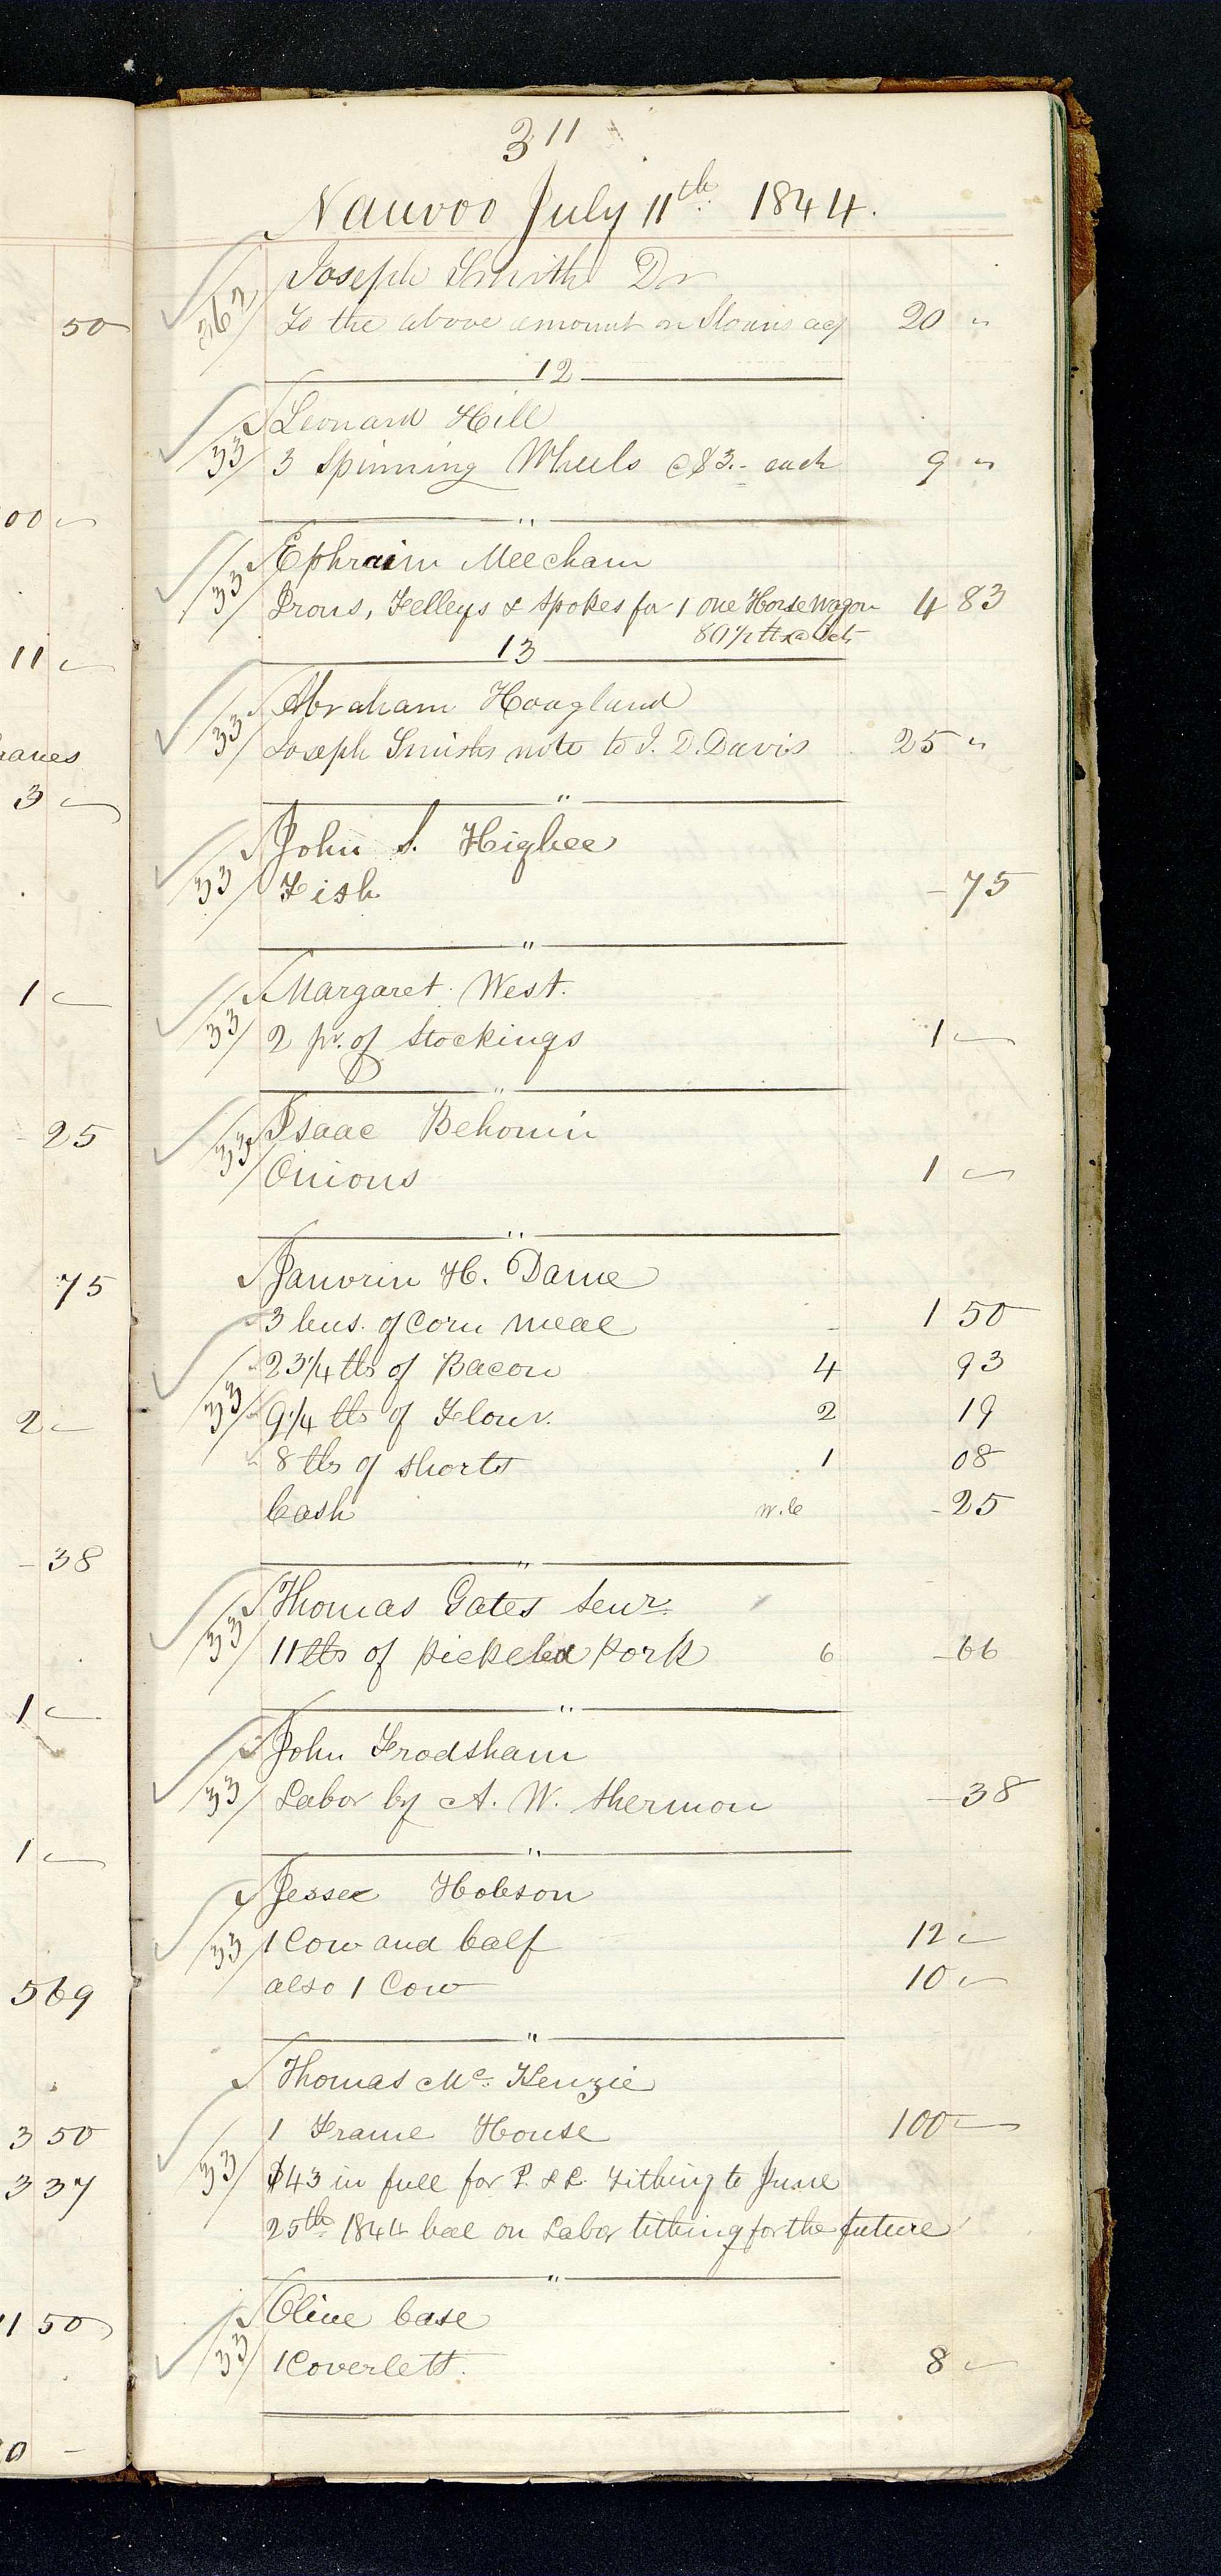 311
Nauvoo July 11th 1844.
Joseph Smith Dr
362 To the above amount on Sloans acg 20 "
12
Leonard Hill
33 3 Spinning Wheels @$3.- each 9 "
"
Ephraim Meecham
33 Irons, Felleys & Spokes for 1 one Horse Wagon 4 83
80½ lbs @ 6cts
13
Abraham Hoagland
33 Joseph Smiths note to J. D. Davis 25 "
"
John S. Higbee
33 Fish - 75
"
Margaret West.
33 2 pr. of Stockings 1 -
"
Isaac Behonin
33 Onions 1 -
"
Janvrin H. Dame
3 bus. of Corn meal 1 50
23¼ lbs of Bacon 4 93
33 9¼ lbs of Flour. 2 19
8 lbs of Shorts 1 08
Cash W.C - 25
"
Thomas Gates Senr.
33 11 lbs of pickeled Pork 6 - 66
"
John Frodsham
33 Labor by A. W. Shermon - 38
"
Jesse Hobson
33 1 Cow and Calf 12 -
also 1 Cow 10 -
"
Thomas Mc. Kenzie
1 Frame House 100 -
33 $43 in full for P. & L. Tithing to June
25th 1844 bal on Labor tithing for the future
"
Olive Case
33 1 Coverlett. 8 -
50
00 -
11 -
3 -
1 -
25
75
2 -
- 38
1 -
1 -
569
3 50
3 37
11 50
0 -